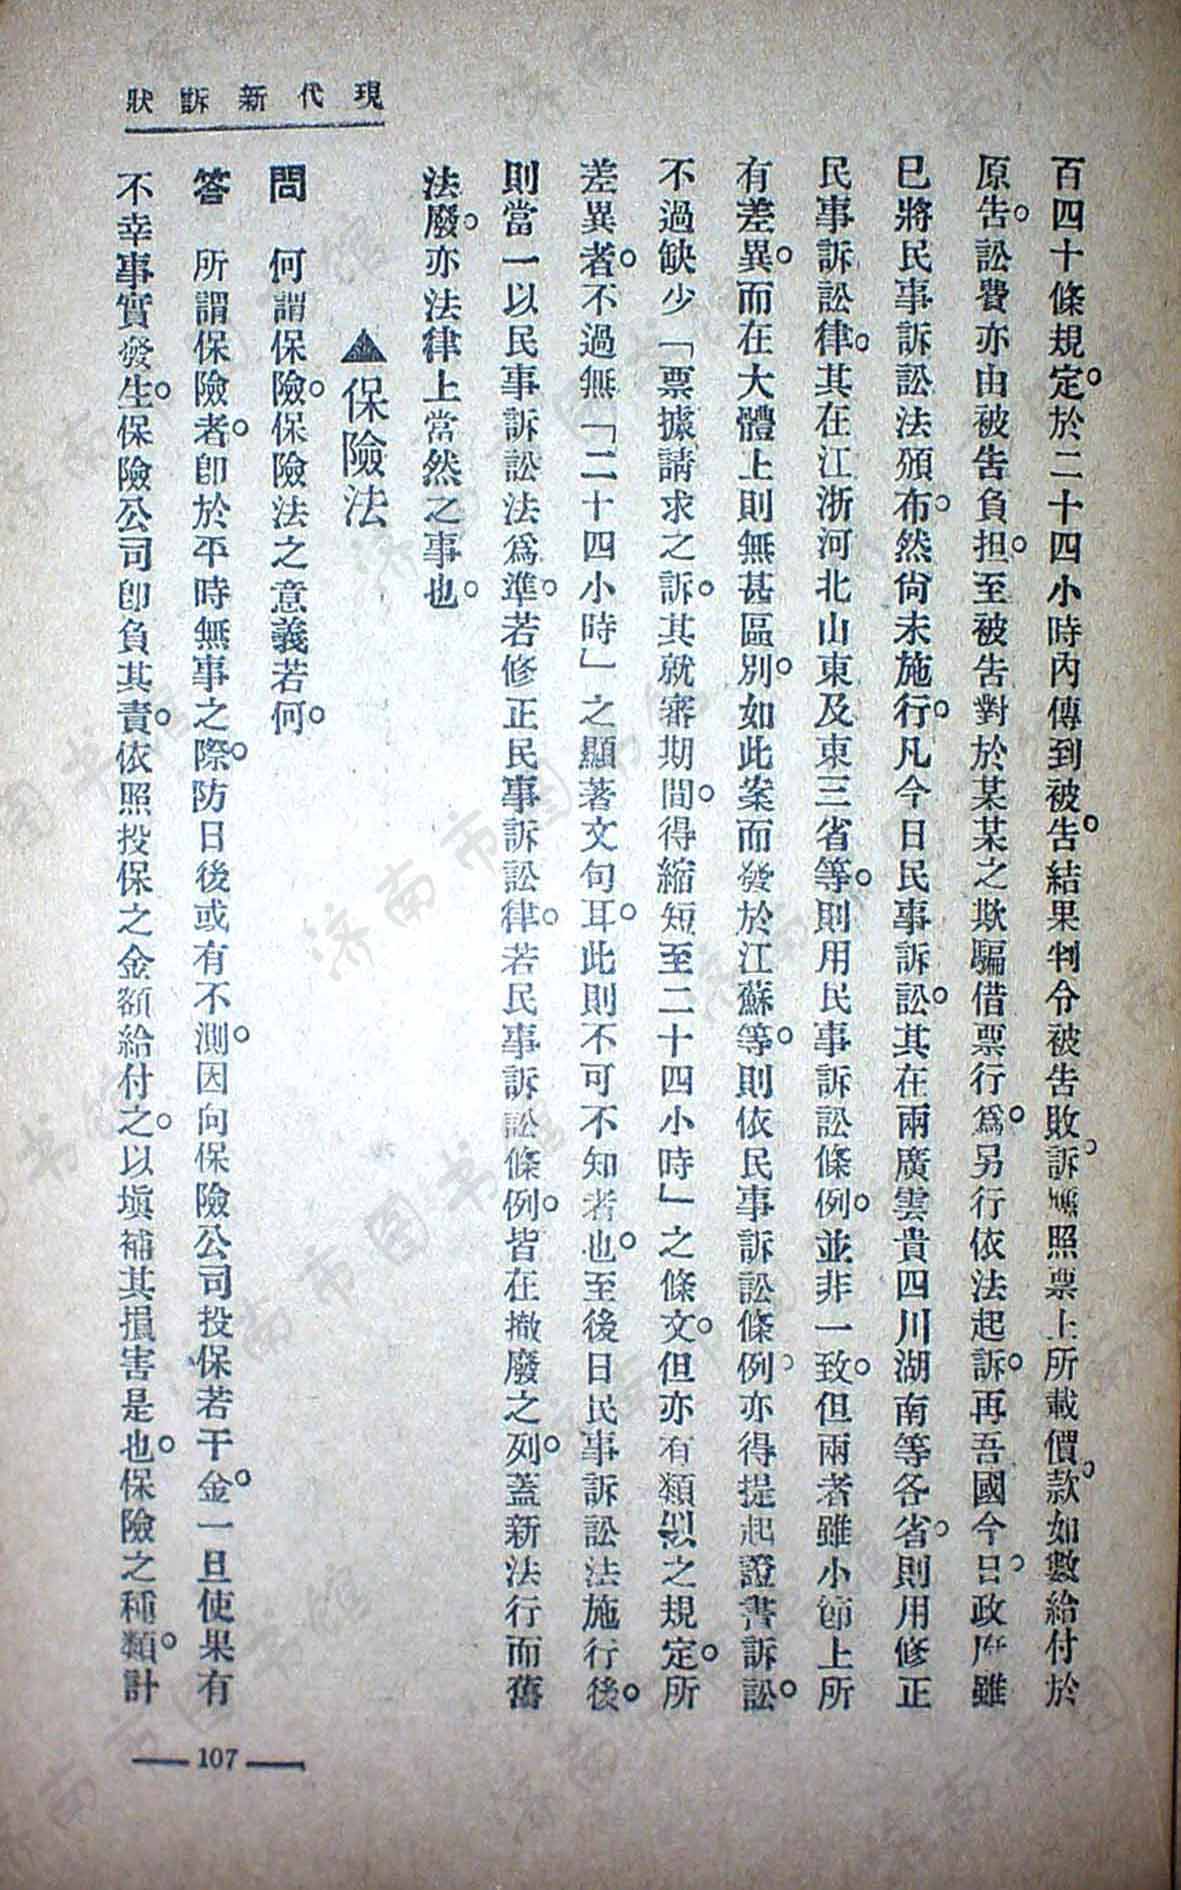 現代新訴狀
百四十條規定。於二十四小時內傳到被告。結果判令被告敗訴。應照票上所載價款。如數給付於
原告。訟費亦由被告負担。至被告對於某某之欺騙借票行爲。另行依法起訴。再吾國今日。政府雖
已將民事訴訟法頒布。然尙未施行。凡今日民事訴訟。其在兩廣雲貴四川湖南等各省。則用修正
民事訴訟律。其在江浙河北山東及東三省等。則用民事訴訟條例。並非一致。但兩者雖小節上所
有差異。而在大體上則無甚區別。如此案而發於江蘇等。則依民事訴訟條例。亦得提起證書訴訟。
不過缺少「票據請求之訴。其就審期間。得縮短至二十四小時」之條文。但亦有類似之規定。所
差異者。不過無「二十四小時」之顯著文句耳。此則不可不知者也。至後日民事訴訟法施行後。
則當一以民事訴訟法爲準。若修正民事訴訟律。若民事訴訟條例。皆在撤廢之列。蓋新法行而舊
法廢。亦法律上當然之事也。
▲保險法
問　何謂保險。保險法之意義若何。
答　所謂保險者。卽於平時無事之際。防日後或有不測。因向保險公司投保若干金。一旦使果有
不幸事實發生。保險公司卽負其責。依照投保之金額給付之。以塡補其損害是也。保險之種類。計
107
濟南市图书馆